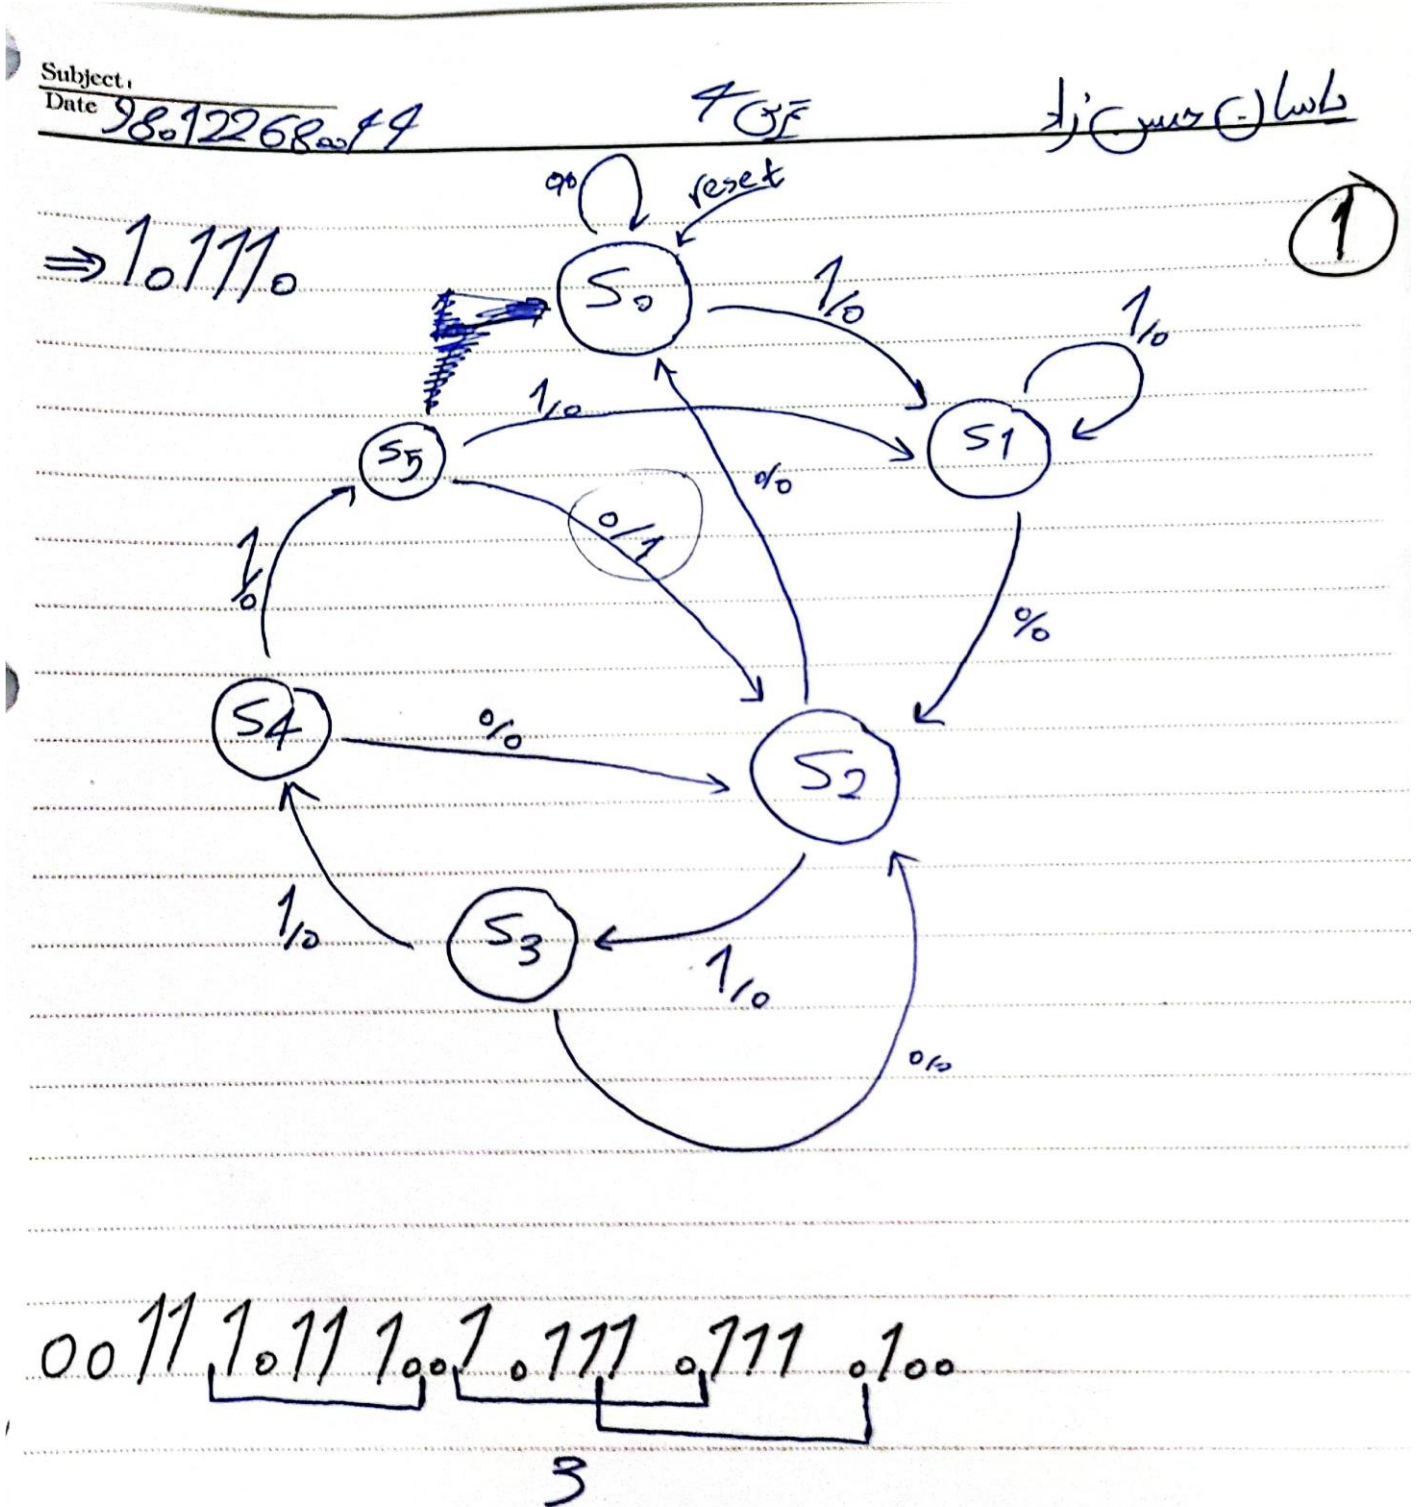 Subject:
Date 98012268044 تمرین 4 یاسان حسین زاد
1
⇒ 101110
0/0 reset
S0
1/0
1/0
1/0
S5 S1
0/0
0/1
1/0
0/0
S4 0/0
S2
1/0 S3
1/0
0/0
0011101110010111011 10100
3